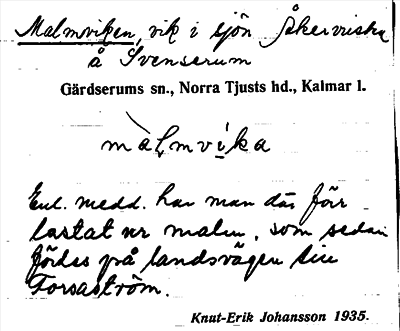 Malmviken, vik i sjön Åkervristen
å Svenserum
Gärdserums sn., Norra Tjusts hd., Kalmar l.
màlmvíka
Enl. medd. har man där förr
lastat ur malm, som sedan
fördes på landsvägen till
Forsaström.
Knut-Erik Johansson 1935.